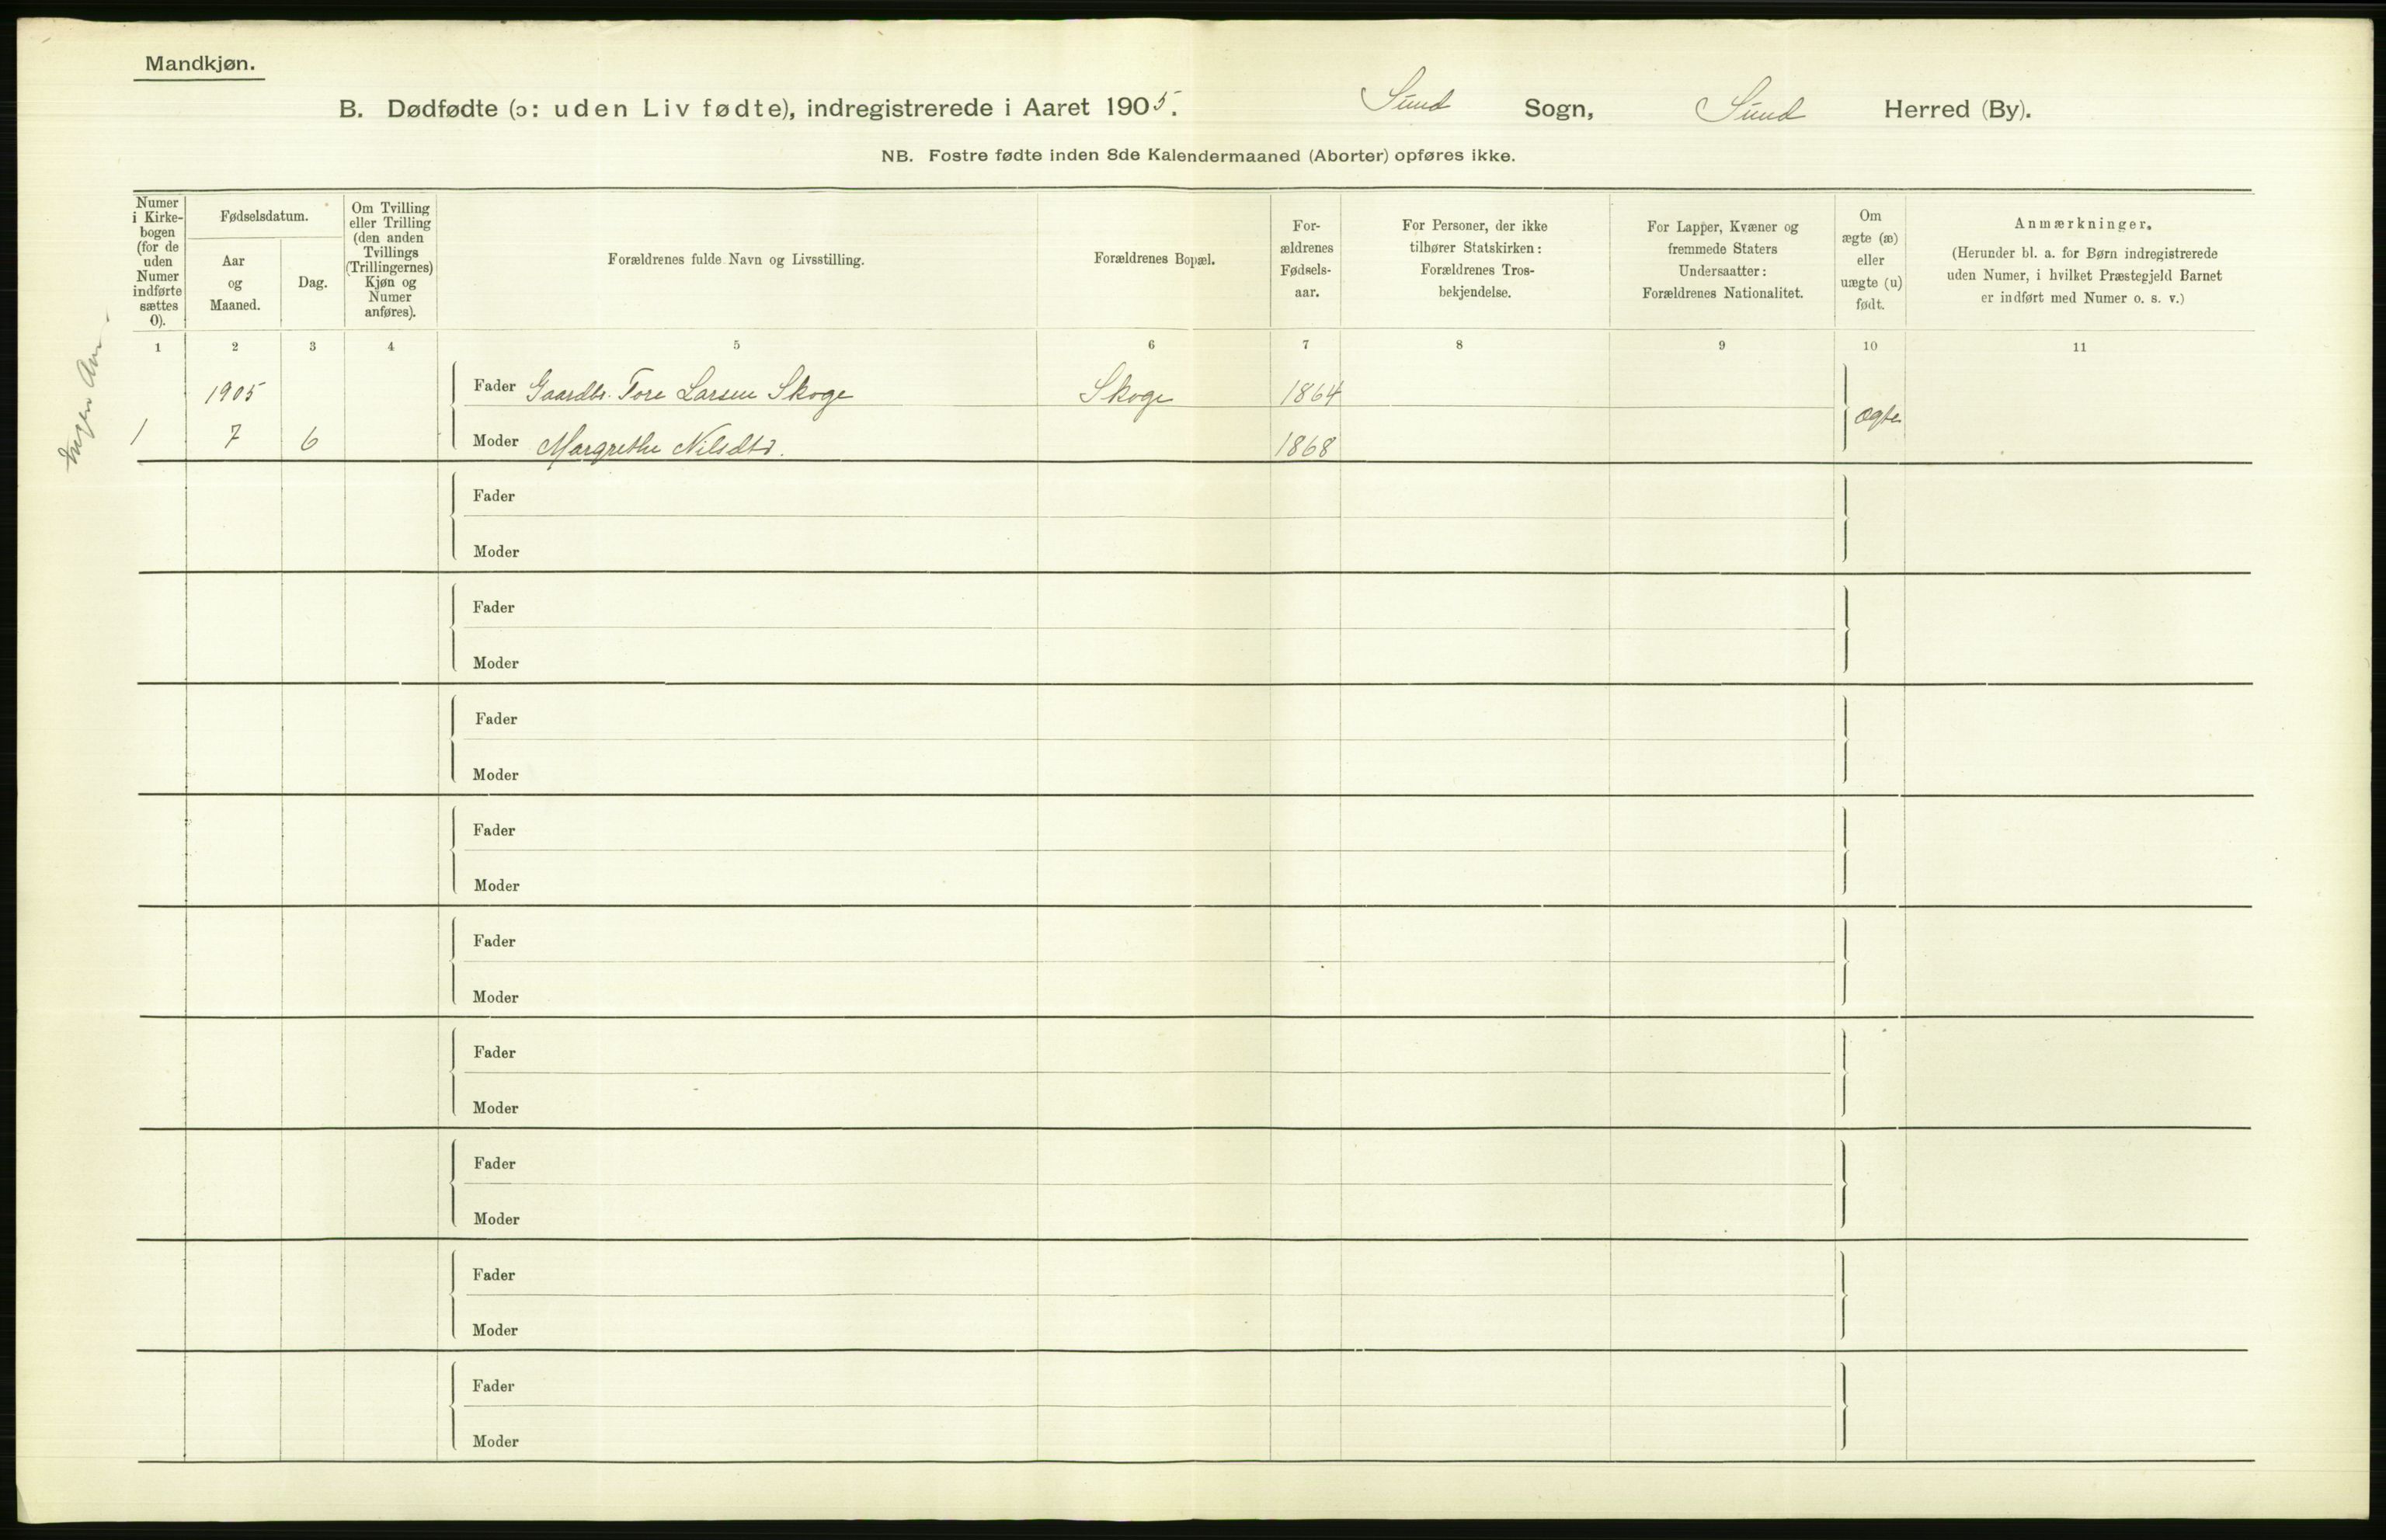 Mandkjøn.
B. Dødfødte (ɔ: uden Liv fødte), indregistrerede i Aaret 1905. Sund Sogn, Sund Herred (By).
NB. Fostre fødte inden 8de Kalendermaaned (Aborter) opføres ikke.
Numer
i Kirke-
bogen
(for de
uden
Numer
indførte
sættes
0).
Fødselsdatum.
Aar
og
Maaned.
Dag.
Om Tvilling
eller Trilling
(den anden
Tvillings
(Trillingernes)
Kjøn og
Numer
anføres).
Forældrenes fulde Navn og Livsstilling.
Forældrenes Bopæl.
For-
ældrenes
Fødsels-
aar.
For Personer, der ikke
tilhører Statskirken:
Forældrenes Tros-
bekjendelse.
For Lapper, Kvæner og
fremmede Staters
Undersaatter:
Forældrenes Nationalitet.
Om
ægte (æ)
eller
uægte (u)
født.
Anmærkninger.
(Herunder bl. a. for Børn indregistrerede
uden Numer, i hvilket Præstegjeld Barnet
er indført med Numer o. s. v.)
1 2 3 4 5 6 7 8 9 10 11
1905 Fader Gaardbr. Tore Larsen Skoge Skoge 1864
ægte
1 7 6 Moder Margrethe Nilsdtr. 1868
Fader
Moder
Fader
Moder
Fader
Moder
Fader
Moder
Fader
Moder
Fader
Moder
Fader
Moder
Fader
Moder
Fader
Moder
Ingen